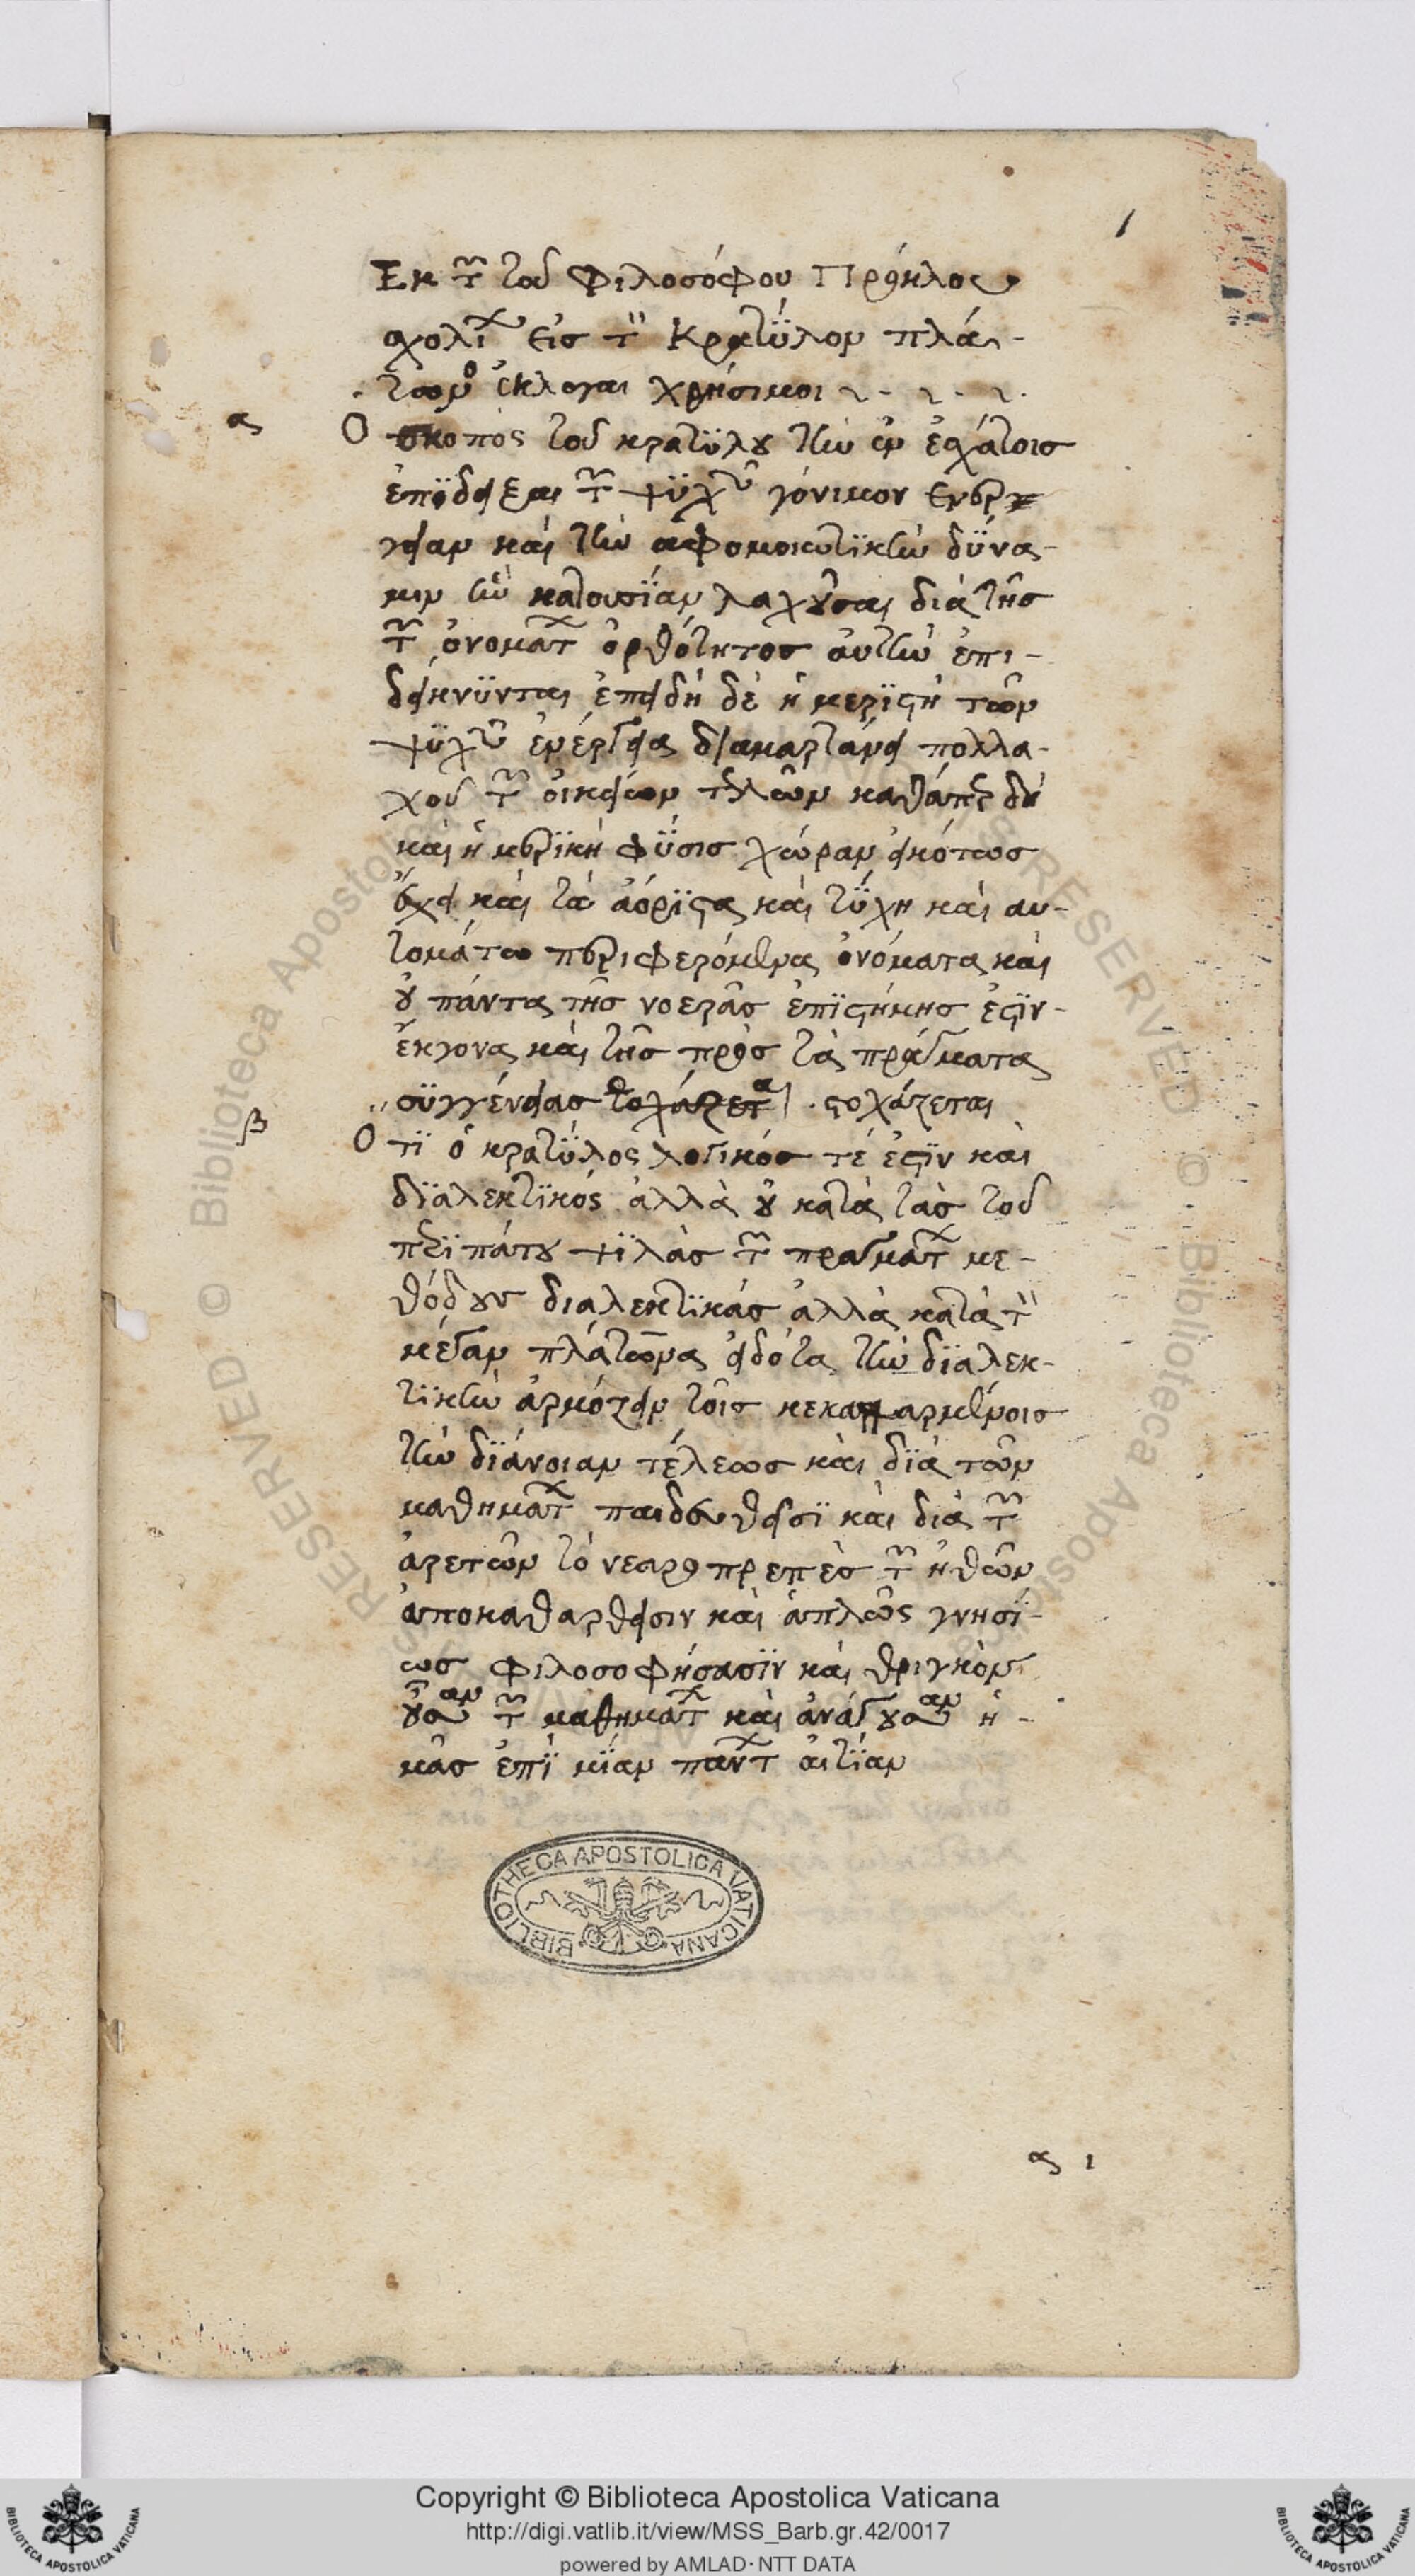 1
Εκ τῶν τοῦ Φιλοσόφου Πρόκλου
σχολίων εἰς τὸν Κρατύλον πλά-
τωνος ἐκλογαι χρήσιμοι
α Ο σκοπὸς τοῦ κρατύλου τὴν ἐν ἐσχάτοις
ἐπϊδεῖξαι τῶν ψϋχῶν γόνιμον ἐνέρ-
γειαν καὶ τὴν ἀφομοιωτϊκὴν δϋνα-
μιν ἣν κατουσϊαν λαχοῦσαι διὰ τῆς
τῶν ὀνομάτων ὀρθότητος αὐτὴν ἐπι-
δείκνϋνται ἐπειδὴ δὲ ἡ μερϊστὴ τῶν
ψϋχῶν ἐνέργεια διαμαρτάνει πολλα-
χοῦ τῶν οἰκείων τελῶν καθάπερ δὴ
καὶ ἡ μερϊκὴ φϋσις χώραν εἰκότως
ἔχει καὶ τὰ ἀόρϊστα καὶ τϋχη καὶ αυ-
τομάτω περιφερόμενα ὀνόματα καὶ
οὐ πάντα τῆς νοερᾶς ἐπϊστήμης ἐστϊν-
ἔκγονα καὶ τῆς πρὸς τὰ πράγματα
συγγένειας στοχάζεται . στοχάζεται
β Ο τϊ ὁ κρατϋλος λογικός τέ ἐστϊν καὶ
δϊαλεκτϊκός ἀλλὰ οὐ κατὰ τὰς τοῦ
περϊπάτου ψϊλὰς τῶν πραγμάτων με-
θόδους διαλεκτϊκάς ἀλλὰ κατὰ τὸν
μέγαν πλάτωνα εἰδότα τὴν δϊαλεκ-
τϊκὴν ἁρμόζειν τοῖς κεκαθαρμένοις
τὴν δϊάνοιαν τέλεως καὶ δϊὰ τῶν
μαθημάτων παιδευθεῖσϊ καὶ διὰ τῶν
ἀρετῶν τὸ νεαροπρεπὲς τῶν ἠθῶν
ἀποκαθαρθεῖσιν καὶ ἁπλῶς γνησϊ-
ως φιλοσοφήσασϊν καὶ θριγκὸν
οὖσαν τῶν μαθημάτων καὶ ἀνάγουσαν ἡ-
μᾶς ἐπϊ μϊαν πάντων αἰτϊαν
BIBLIOTHECA APOSTOLICA VATICANA
α 1
RESERVED © Biblioteca Apostolica
Copyright © Biblioteca Apostolica Vaticana
http://digi.vatlib.it/view/MSS_Barb.gr.42/0017
powered by AMLAD·NTT DATA
BIBLIOTECA APOSTOLICA VATICANA
BIBLIOTECA APOSTOLICA VATICANA